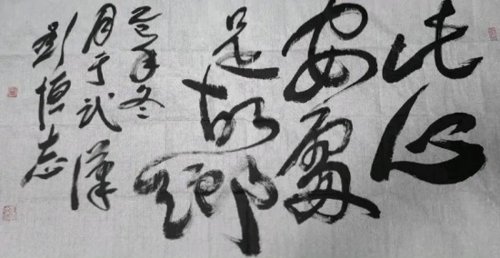 此心
安處
是故
鄉
年冬
月于武漢
彭恒志